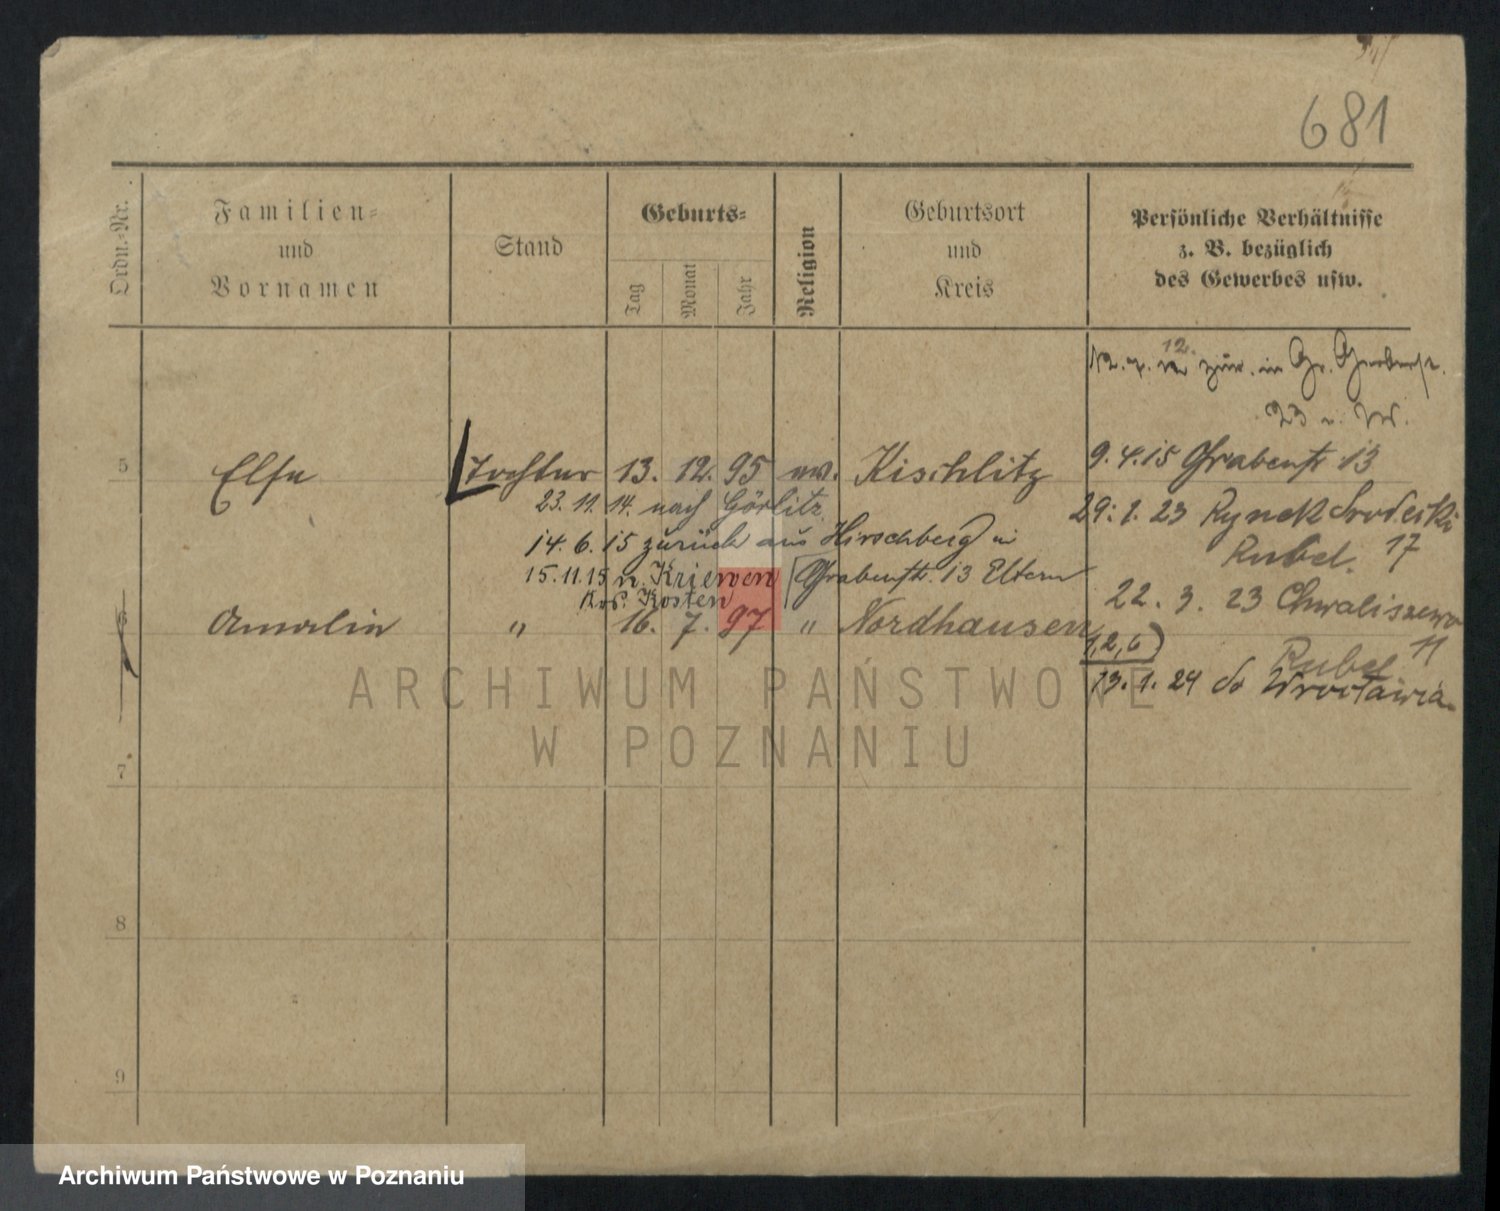 681
Ordn.-Nr.
Familien-
und
Vornamen
Stand
Geburts-
Tag
Monat
Jahr
Religion
Geburtsort
und
Kreis
Persönliche Verhältnisse
z. B. bezüglich
des Gewerbes usw.
12.
zur. in Gr. Gerberst.
23 u. W.
9.4.15 Grabenstr 13
5 Else Tochter 13. 12. 95 ev. Kischlitz
23. 11. 14. nach Görlitz
29. 1. 23 Rynek Srodecki
17
14. 6. 15 zurück aus Hirschberg in
15.11.15 n. Kriewen Grabenstr. 13 Eltern
Kr. Kosten
22. 3. 23 Chwaliszewo
11
6 Amalie " 16. 7. 97 " Nordhausen
1,2,6)
13. 1. 24 do Wrocławia
7
8
9
ARCHIWUM PAŃSTWOWE
W POZNANIU
Archiwum Państwowe w Poznaniu